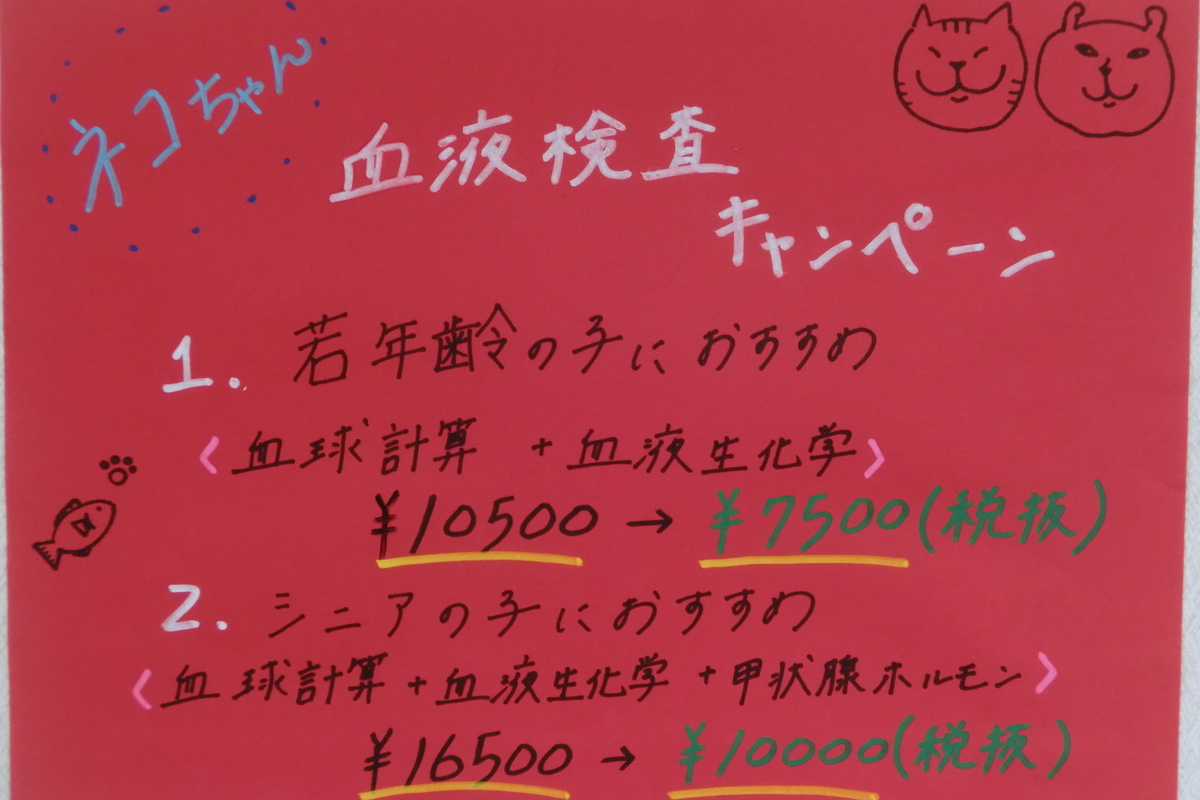 ネコちゃん
血液検査
キャンペーン
1. 若年齢の子におすすめ
〈血球計算 + 血液生化学〉
¥10500 → ¥7500(税抜)
2. シニアの子におすすめ
〈血球計算+血液生化学+甲状腺ホルモン〉
¥16500 → ¥10000(税抜)